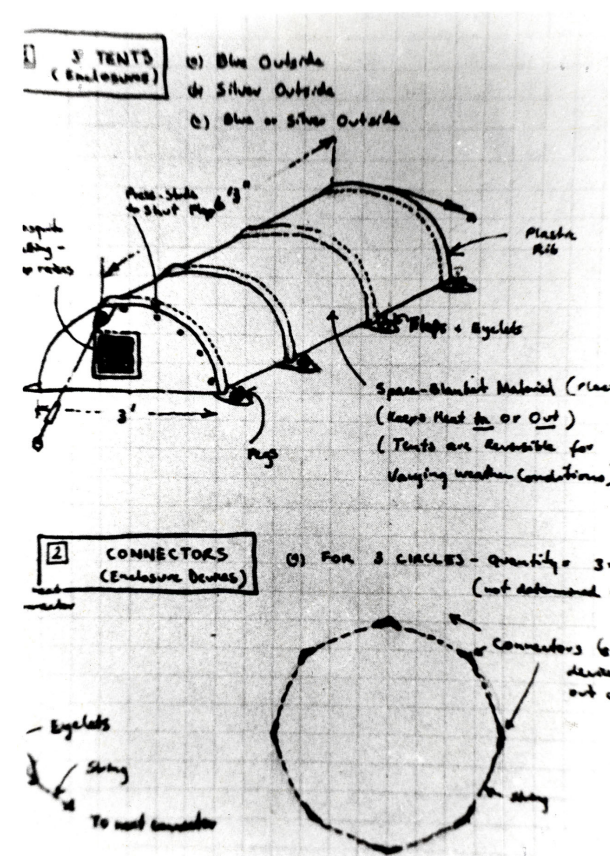 1 3 TENTS
(Enclosures)
(a) Blue Outside
(b) Silver Outside
(c) Blue or Silver Outside
Press-Studs
to Shut Flap
6'3"
Plastic
Rib
Flaps + Eyelets
3'
Pegs
Space-Blanket Material
(Keeps Heat In or Out)
(Tents are Reversible for
Varying weather Conditions)
2 CONNECTORS
(Enclosure Devices)
FOR 3 CIRCLES - Quantity =
(not determined
Connectors
out
Eyelets
String
To next connector
String